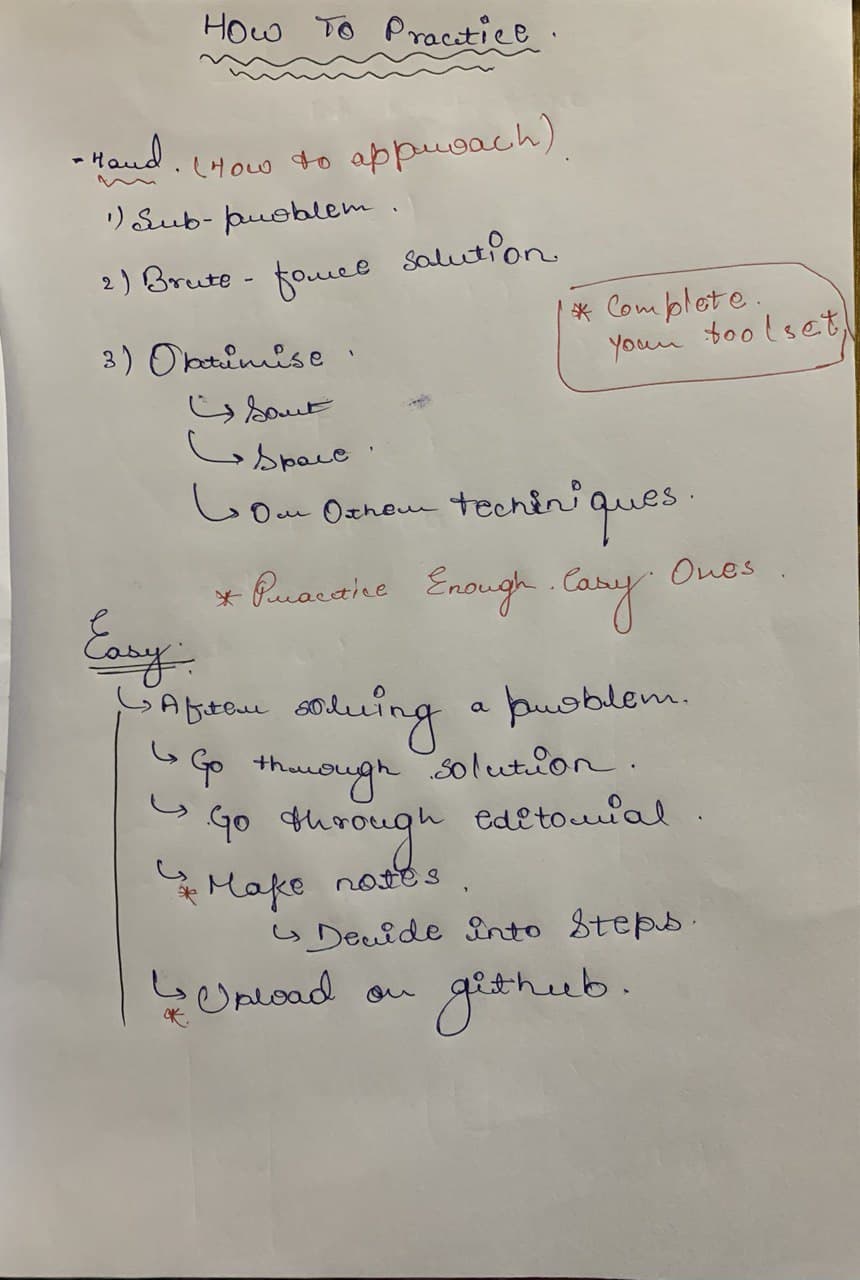 How To Practice.
- Hard. (How to approach).
1) Sub-problem.
2) Brute-force solution.
* Complete.
your toolset,
3) Optimise.
↳ Sort
↳ Space.
↳ Or Other techiniques.
* Practice Enough. Easy. Ones.
Easy:
↳ After solving a problem.
↳ Go through solution.
↳ Go through editorial.
↳ * Make notes.
↳ Devide into steps.
↳ * Upload on github.